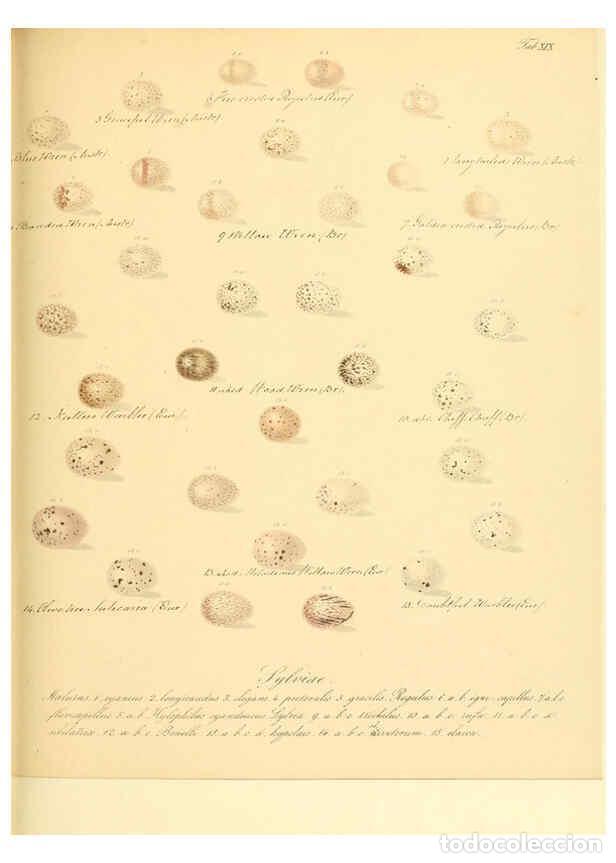 Tab XIX
Regulus (Eur)
3 Graceful Wren (Austr)
Blue Wren (Austr)
Wren (Austr)
Banded Wren (Austr)
9 Willow Wren (Br)
7 Golden crested Regulus (Br)
11 abcd. Wood Wren (Br)
12. Warbler (Eur)
10 abc. Chiff Chaff (Br)
13 abcd. Willow Wren (Eur)
14. Olive tree Salicaria (Eur)
15. Doubtful Warbler (Eur)
Sylvidae
Malurus. 1. cyaneus 2. longicaudus 3. elegans. 4 pectoralis 5 gracilis. Regulus 6. a. b. igni-capillus. 7. a b c
flavicapillus 8. a. b. Hylophilus cyanoleucus Sylvia. 9. a b c trochilus. 10. a. b. c. rufa. 11. a b c d
sibilatrix. 12. a b c Bonelli. 13. a b c d. hypolais. 14. a. b. c. olivetorum. 15. elaica.
todocoleccion